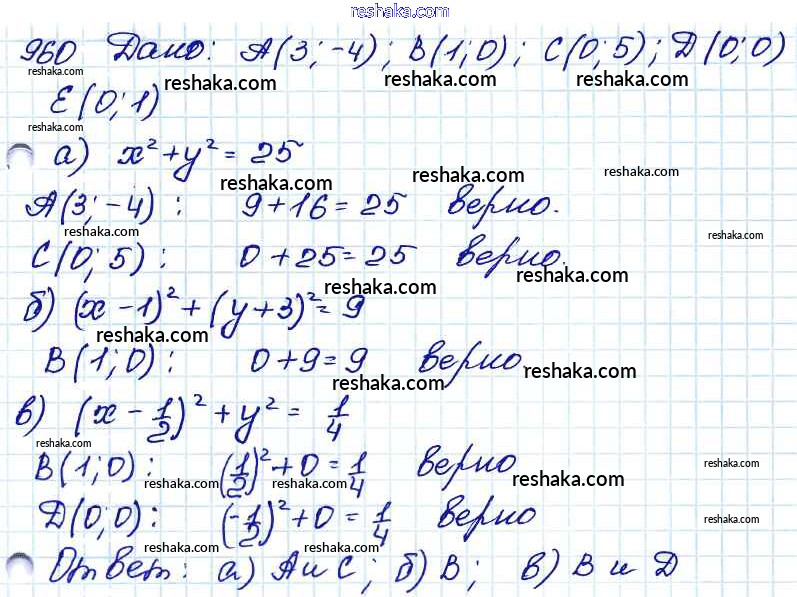 reshaka.com
960 Дано: A(3;-4); B(1;0); C(0;5); D(0;0)
reshaka.com reshaka.com reshaka.com reshaka.com
E(0;1)
reshaka.com
а) x² + y² = 25
reshaka.com reshaka.com reshaka.com
A(3;-4): 9+16=25 верно.
reshaka.com reshaka.com
C(0;5): 0+25=25 верно.
reshaka.com reshaka.com
б) (x-1)² + (y+3)² = 9
reshaka.com
B(1;0): 0+9=9 верно
reshaka.com reshaka.com
в) (x - 1/2)² + y² = 1/4
reshaka.com
B(1;0): (1/2)² + 0 = 1/4 верно
reshaka.com reshaka.com reshaka.com reshaka.com
D(0;0): (-1/2)² + 0 = 1/4 верно
reshaka.com reshaka.com reshaka.com
Ответ: а) A и C; б) B; в) B и D